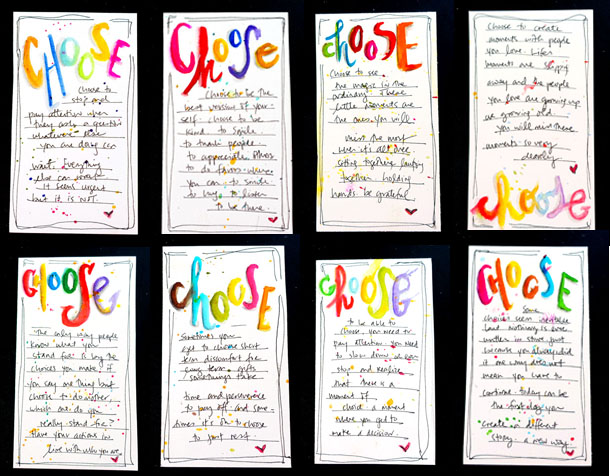 CHOOSE
choose to
stop and
pay attention when
they ask a question
whatever else
you are doing can
wait. Everything
else can wait
it seems urgent
but it is NOT.
CHOOSE
choose to be the
best version of your
self. choose to be
kind to smile
to thank people
to appreciate others
to do favors where
you can to smile
to hug to listen
to be there.
CHOOSE
choose to see
the magic in the
ordinary. These
little moments are
the ones you will
miss the most
when it's all over
sitting together laughing
together holding
hands. be grateful
choose to create
moments with people
you love. Life's
moments are slipping
away and the people
you love are growing up
we growing old
you will miss these
moments so very
dearly
choose
CHOOSE
The only way people
know what you
stand for is by the
choices you make. if
you say one thing but
choose to do another,
which one do you
really stand for?
Have your actions in
line with who you are
choose
Sometimes you
get to choose short
term discomfort for
long term gifts
somethings take
time and perseverance
to pay off and some
times it's ok to choose
to just rest
choose
to be able to
choose you need to
pay attention you need
to slow down or even
stop and realize
that there is a
moment of
choice a moment
where you get to
make a decision
CHOOSE
Some
choices seem inevitable
but nothing is ever
written in stone just
because you always did
it one way does not
mean you have to
continue. today can be
the first day you
create a different
story. a new way